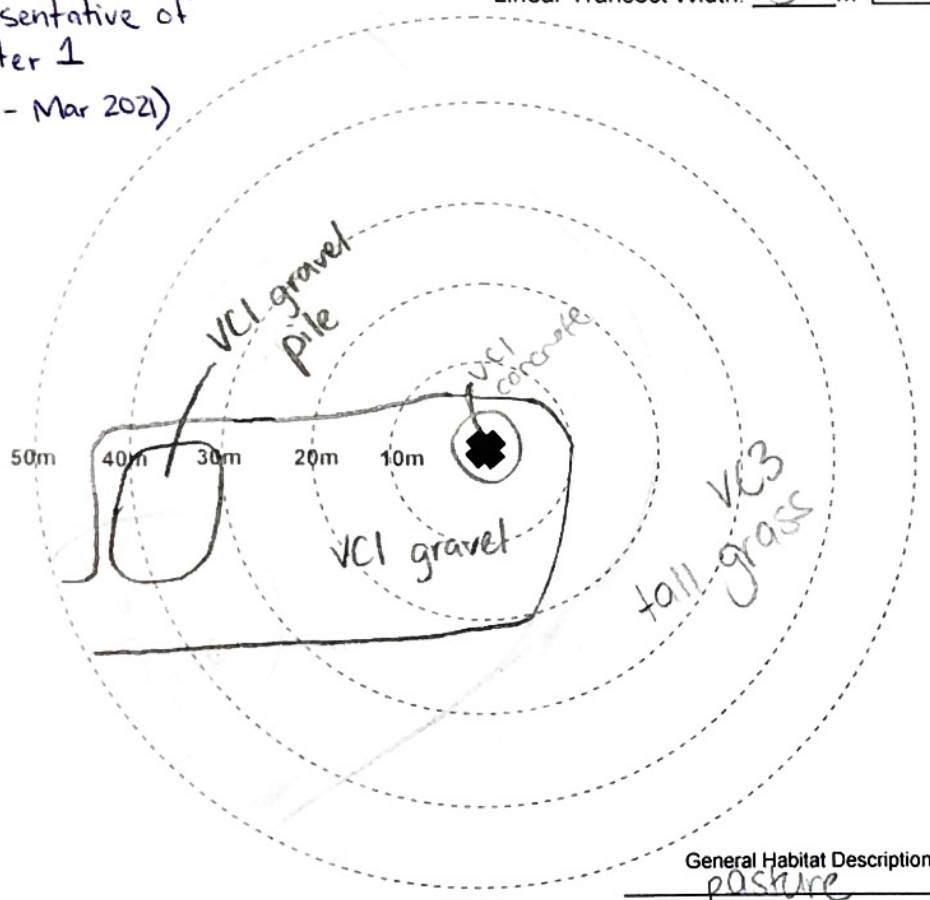 sentative of
ter 1
- Mar 2021)
Linear Transect Width:
VC1 gravel
pile
VC1
concrete
50m 40m 30m 20m 10m
VC1 gravel
VC3
tall grass
General Habitat Description
pasture